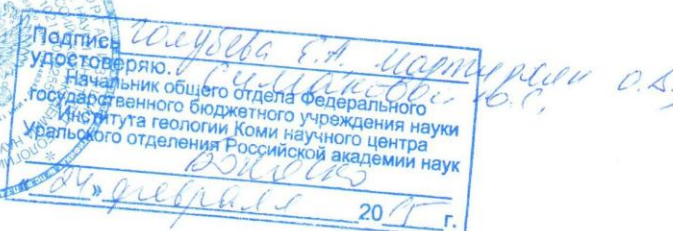 Подпись Голубева Е.А. Мартиросян О.В.
удостоверяю. Симаковой Ю.С.
Начальник общего отдела Федерального
государственного бюджетного учреждения науки
Института геологии Коми научного центра
Уральского отделения Российской академии наук
«24» февраля 2015 г.